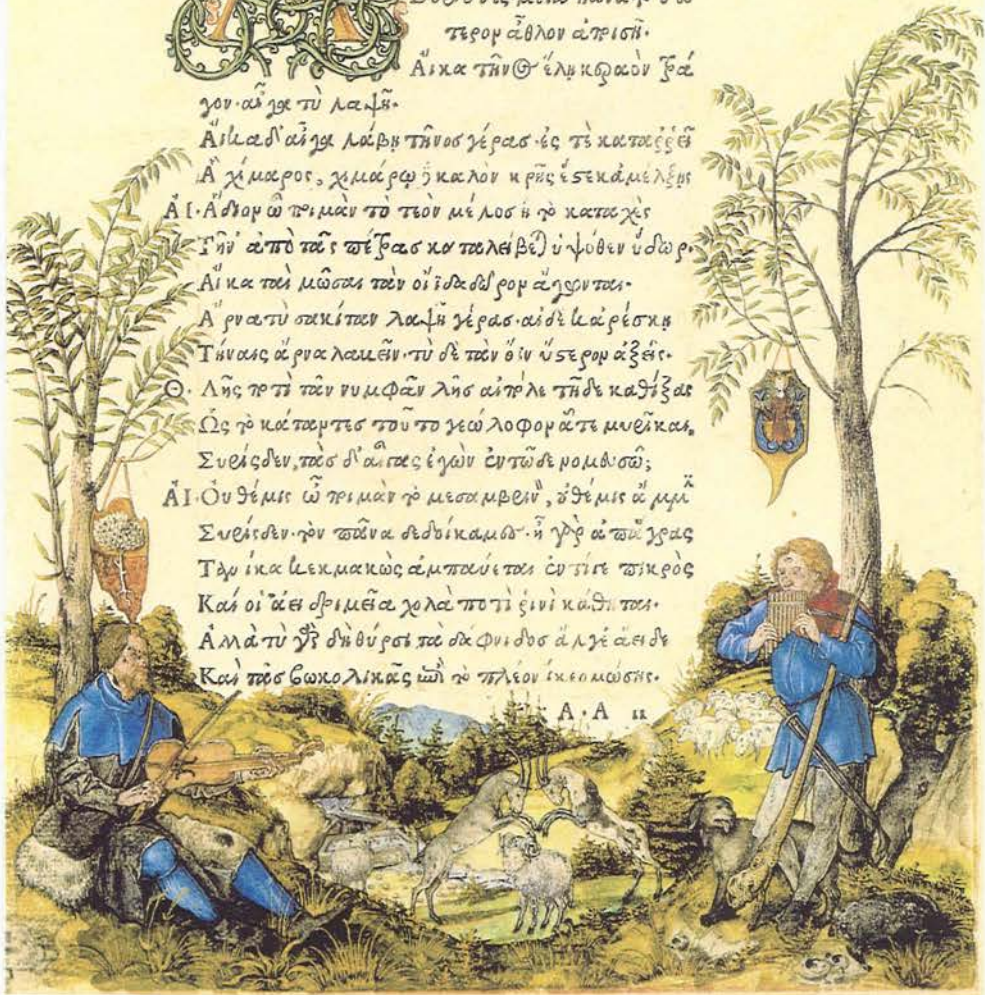 μετὰ πᾶνα τὸ
τερον ἆθλον ἀποισῇ·
Αἴκα τῆνος ἕλῃ κεραὸν τρά
γον· αἶγα τὺ λαψῇ·
Αἴκα δ' αἶγα λάβῃ τῆνος γέρας· ἐς τὲ καταῤῥεῖ
Ἁ χίμαρος, χιμάρω δὲ καλὸν κρῆς ἔστε κ' ἀμέλξῃς
ΑΙ· Ἅδιον ὦ ποιμὰν τὸ τεὸν μέλος ἢ τὸ καταχὲς
Τῆν' ἀπὸ τᾶς πέτρας καταλείβεται ὑψόθεν ὕδωρ·
Αἴκα ταὶ μῶσαι τὰν οἴϊδα δῶρον ἄγωνται·
Ἄρνα τὺ σακίταν λαψῇ γέρας· αἰ δέ κ' ἀρέσκῃ
Τήναις ἄρνα λαβεῖν· τὺ δὲ τὰν ὄϊν ὕστερον ἀξεῖς·
Θ· Λῇς ποτὶ τᾶν νυμφᾶν λῇς αἰπόλε τῇδε καθίξας
Ὡς τὸ κάταντες τοῦτο γεώλοφον ἅτε μυρῖκαι,
Συρίσδεν, τὰς δ' αἶγας ἐγὼν ἐν τῷδε νομευσῶ;
ΑΙ· Οὐ θέμις ὦ ποιμὰν τὸ μεσαμβρινὸν, οὐ θέμις ἄμμιν
Συρίσδεν· τὸν πᾶνα δεδοίκαμες· ἦ γὰρ ἀπ' ἄγρας
Τανίκα κεκμακὼς ἀμπαύεται ἐντί γε πικρὸς
Καί οἱ ἀεὶ δριμεῖα χολὰ ποτὶ ῥινὶ κάθηται·
Ἀλλὰ τὺ γὰρ δὴ θύρσι τὰ δάφνιδος ἄλγε ἄειδε
Καὶ τᾶς βωκολικᾶς ἐπὶ τὸ πλέον ἵκεο μώσης·
Α·Α ιι